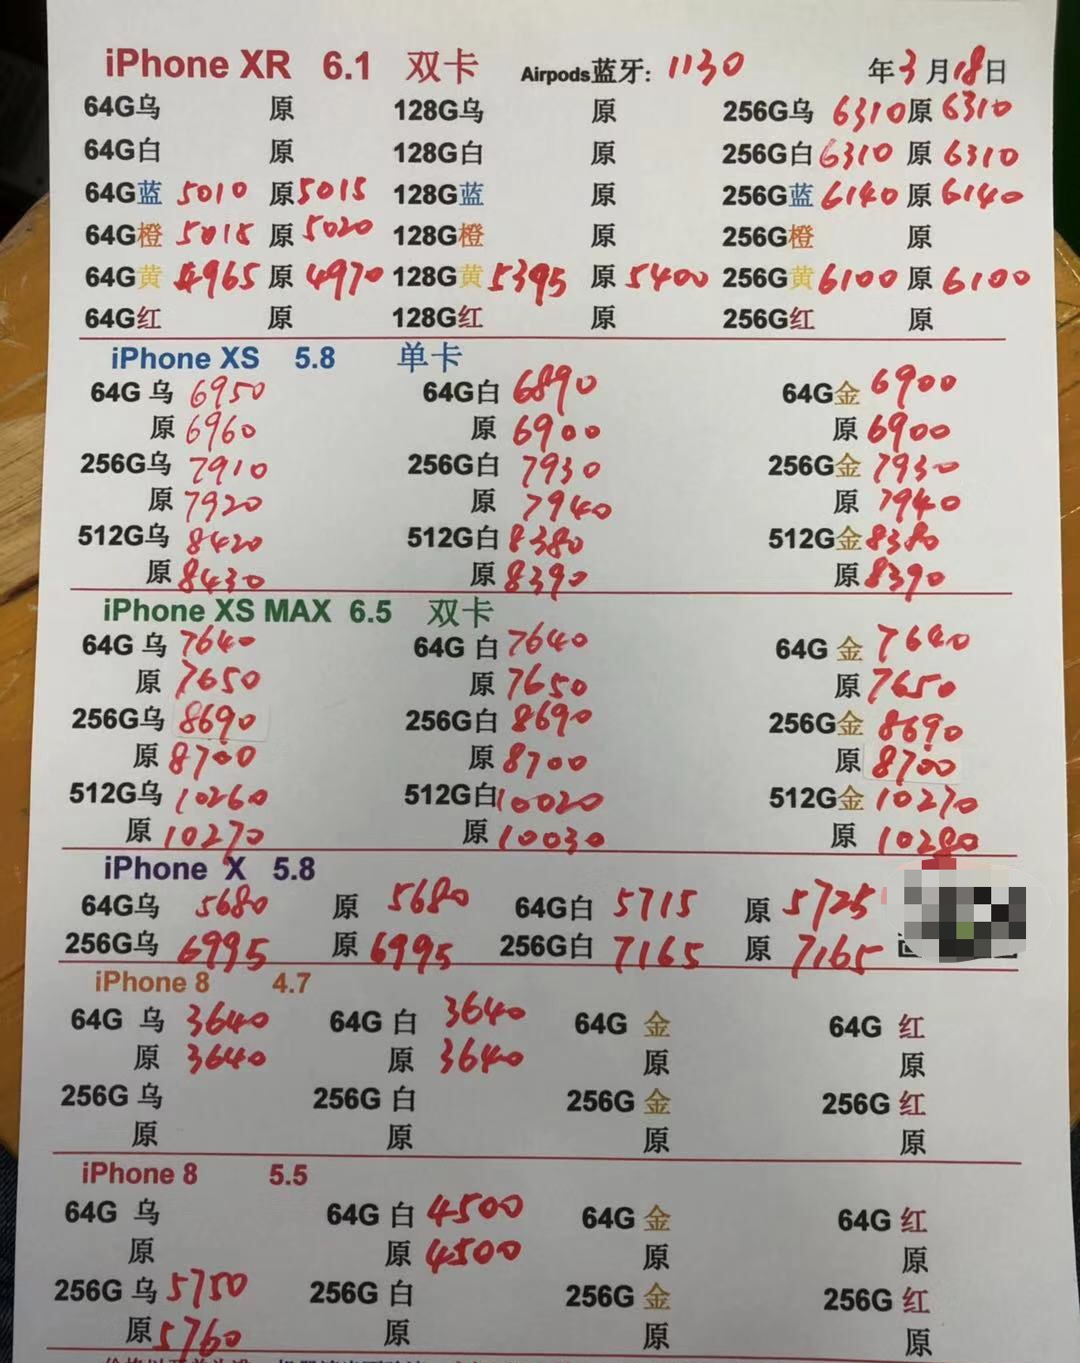 iPhone XR 6.1 双卡 Airpods蓝牙: 1130 年3月18日
64G乌 原 128G乌 原 256G乌 6310 原 6310
64G白 原 128G白 原 256G白 6310 原 6310
64G蓝 5010 原 5015 128G蓝 原 256G蓝 6140 原 6140
64G橙 5015 原 5020 128G橙 原 256G橙 原
64G黄 4965 原 4970 128G黄 5395 原 5400 256G黄 6100 原 6100
64G红 原 128G红 原 256G红 原
iPhone XS 5.8 单卡
64G 乌 6950 64G白 6890 64G金 6900
原 6960 原 6900 原 6900
256G乌 7910 256G白 7930 256G金 7930
原 7920 原 7940 原 7940
512G乌 8420 512G白 8380 512G金 8380
原 8430 原 8390 原 8390
iPhone XS MAX 6.5 双卡
64G 乌 7640 64G 白 7640 64G 金 7640
原 7650 原 7650 原 7650
256G乌 8690 256G白 8690 256G金 8690
原 8700 原 8700 原 8700
512G乌 10260 512G白 10020 512G金 10270
原 10270 原 10030 原 10280
iPhone X 5.8
64G乌 5680 原 5680 64G白 5715 原 5725
256G乌 6995 原 6995 256G白 7165 原 7165
iPhone 8 4.7
64G 乌 3640 64G 白 3640 64G 金 64G 红
原 3640 原 3640 原 原
256G 乌 256G 白 256G 金 256G 红
原 原 原 原
iPhone 8 5.5
64G 乌 64G 白 4500 64G 金 64G 红
原 原 4500 原 原
256G 乌 5750 256G 白 256G 金 256G 红
原 5760 原 原 原